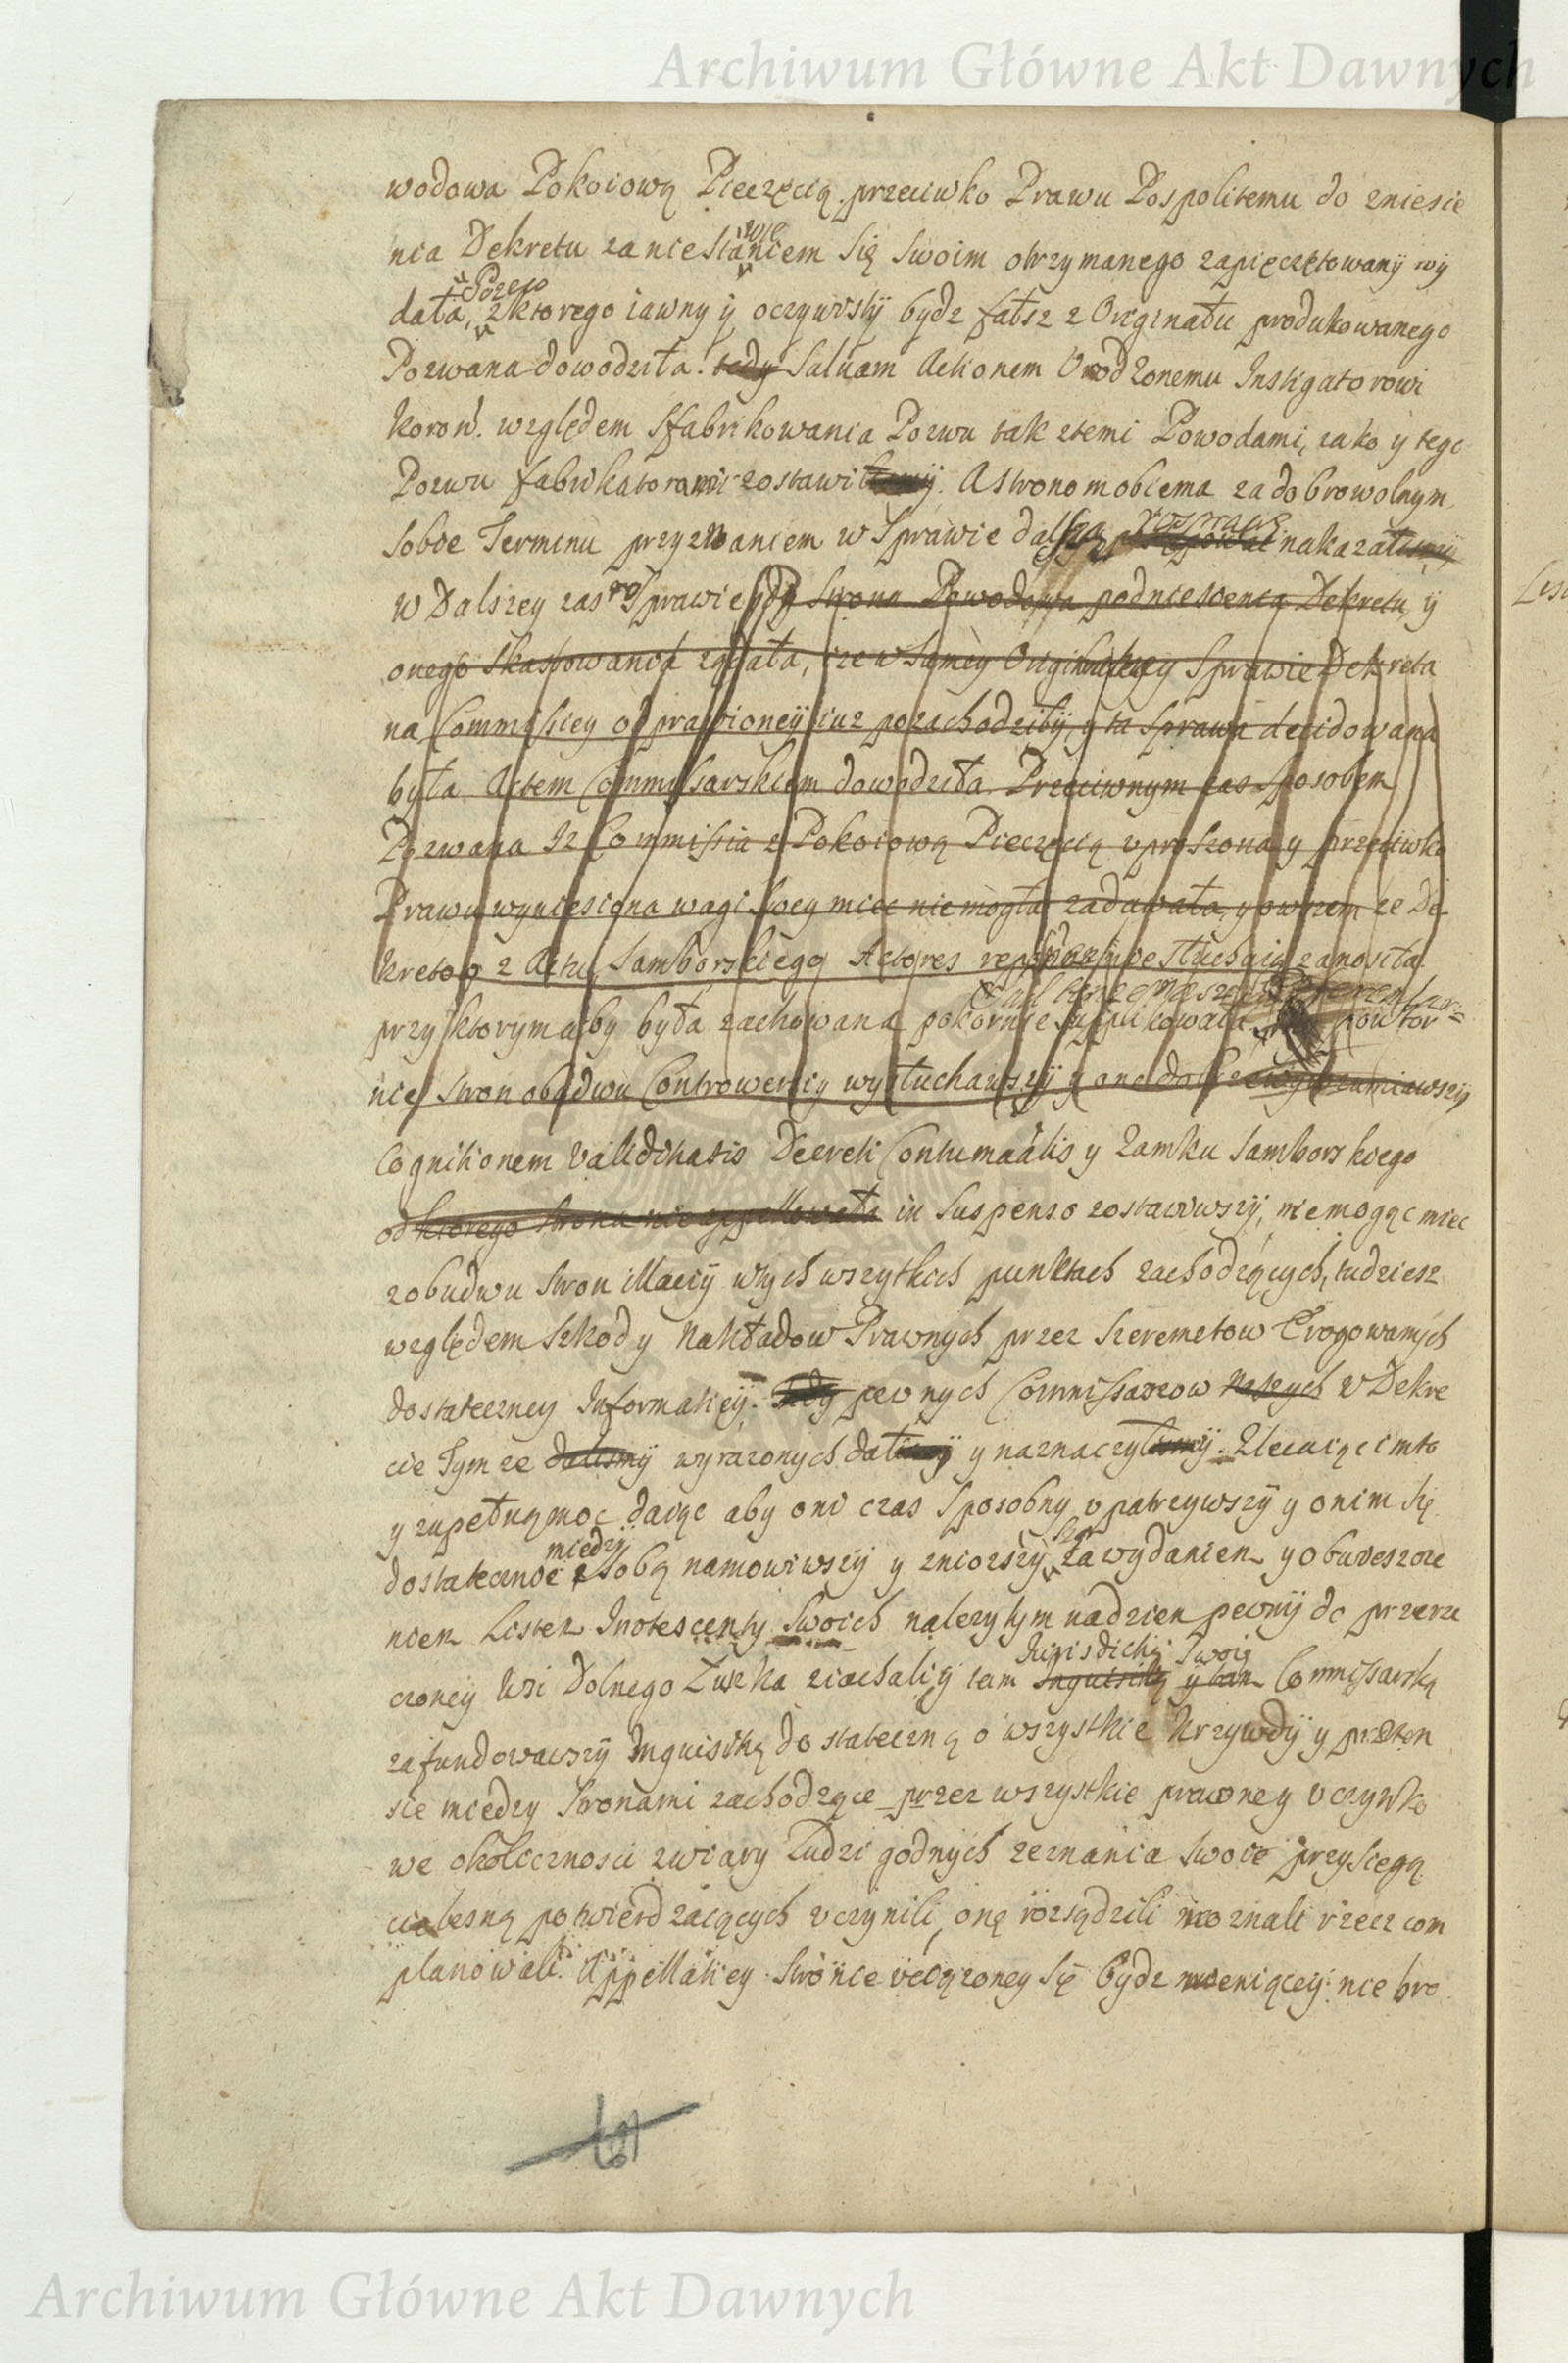 Archiwum Główne Akt Dawnych
wodowa Pokoiową Pieczęcią przeciwko Prawu Pospolitemu do zniesie
nia Dekretu za niestaniem się swoim otrzymanego zapięczętowanÿ wÿ
Pozew
data, z ktorego iawny ÿ oczywistÿ bydz fałsz z Originału produkowanego
Pozwana dowodziła. tedy Saluam Actionem Urodzonemu Instigatorowi
Koron. względem sfabrikowania Pozwu tak ztemi Powodami, iako y tego
Pozwu fabrikatorami zostawi. A stronom obiema za dobrowolnym
rosprawę
sobie Terminu przyznaniem w Sprawie dalszą nakazalismÿ
w Dalszey zas Sprawie gdy strona Powodowa podniesienia Dekretu ÿ
onego skassowania żądała, ize w samey Originalney Sprawie Dekreta
na Commissiey odprawioneÿ iuz pozachodziłÿ, y ta sprawa decidowana
była Actem Commissarskiem dowodziła. Przeciwnym zas sposobem
Pozwana Iz Commissia z Pokoiową Pieczęcią uproszona y przeciwko
Prawu wyniesiona wagi swey miec nie mogła zadawała, y owszem ze De
kretow z Actu Samborskiego Actores zanosiła.
przy ktorym aby była zachowana pokornie supplikowała powtor
nie stron obodwu Controwersiy wysłuchawszÿ y one dobrze wyrozumiawszÿ
Cognitionem validitatis Decreti Contumatialis y Zamku Samborskiego
od ktorego strona nie appellowała in suspenso zostawiwszÿ, niemogąc miec
z obudwu stron illaciÿ wtych wszytkich punktach zachodzących, tudziesz
względem szkody nakładow Prawnych przez Szeremetow Erogowanych
dostateczney Informatieÿ. Tedy pewnych Commissarzow naszych w Dekre
cie Tymze dalismÿ wyrazonych dalismÿ y naznaczylismÿ. Zlecaiąc im to
y zupełną moc daiąc aby oni czas sposobny upatrzywszÿ y onim się
międzÿ
dostatecznie sobą namowiwszÿ y zniozszÿ, za wydaniem y obwieszcze
niem Listem Inotescenty swoich nalezytym nadzien pewnÿ do przerze
Iurisdictią swoią
czoney Wsi Dolnego Zuska ziachali y tam Inquisitią y tam Commissarską
zafundowawszÿ Inquisitią dostateczną o wszystkie krzywdÿ y preten
sie miedzy stronami zachodzące przez wszystkie prawney uczynko
we okolicznosci zwiary Ludzi godnych zeznania swoie przysięgą
cielesną potwierdzaiących uczynili, onę rozsądzili uznali rzecz com
planowali. Appellatiey stronie uciązoney się bydz mieniąceÿ nie bro
Archiwum Główne Akt Dawnych